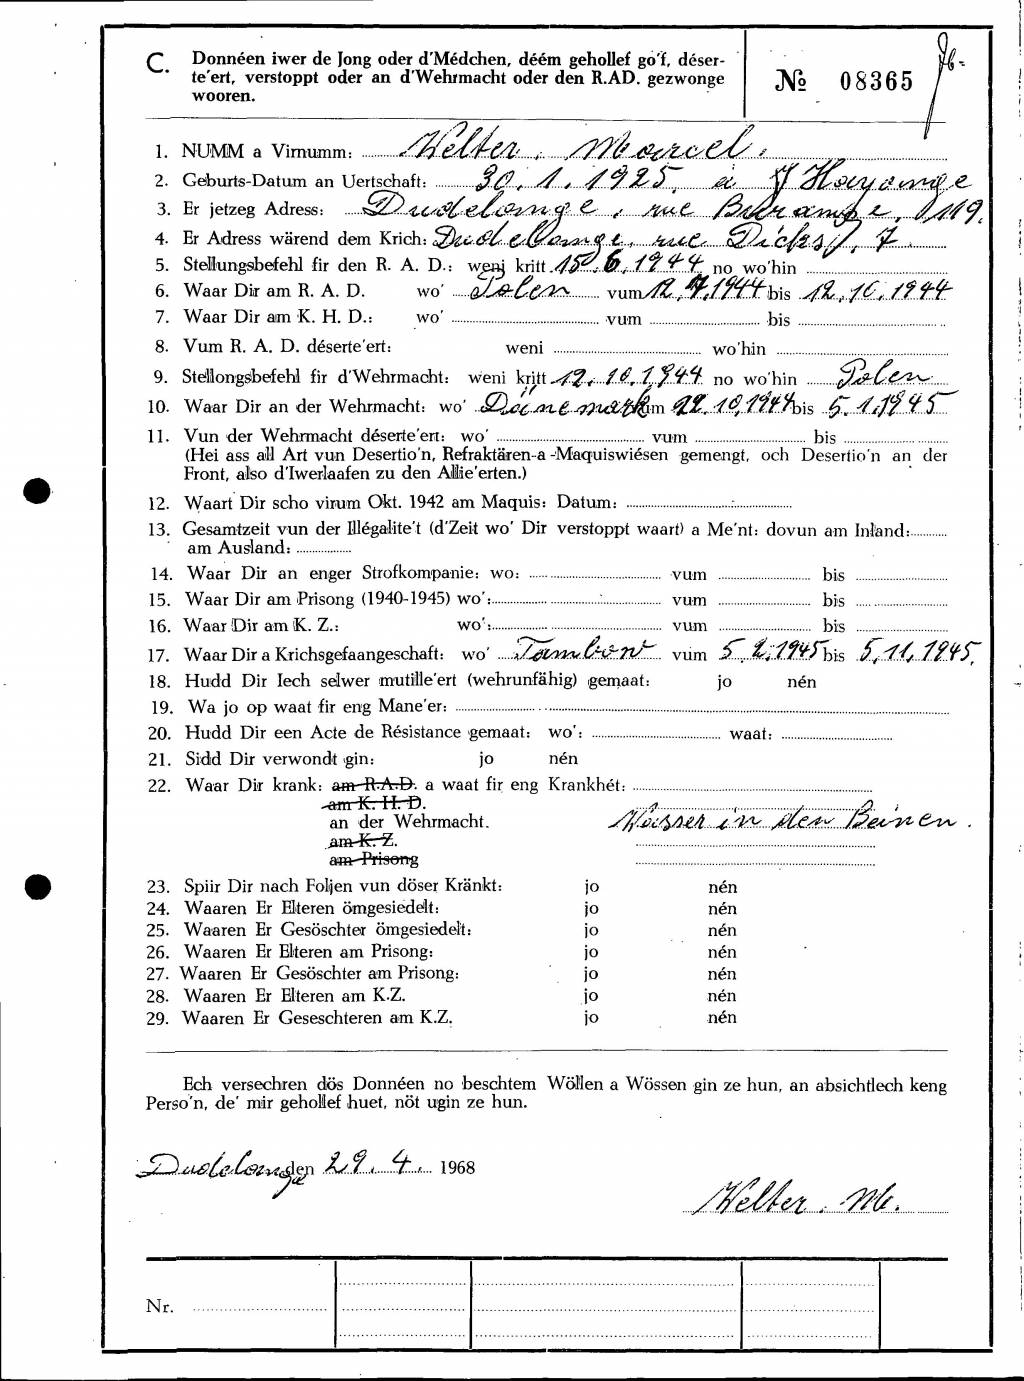 C. Donnéen iwer de Jong oder d'Médchen, déém gehollef go'f, déser-
te'ert, verstoppt oder an d'Wehrmacht oder den R.AD. gezwonge
wooren.
№ 08365
1. NUMM a Virnumm: Welter, Marcel.
2. Geburts-Datum an Uertschaft: 30.1.1925. à Hayange
3. Er jetzeg Adress: Dudelange, rue 119.
4. Er Adress wärend dem Krich: Dudelange, rue Dicks, 7.
5. Stellungsbefehl fir den R. A. D.: weni kritt 15.6.1944 no wo'hin
6. Waar Dir am R. A. D. wo' Polen vum 12.7.1944 bis 12.10.1944
7. Waar Dir am K. H. D.: wo' vum bis
8. Vum R. A. D. déserte'ert: weni wo'hin
9. Stellongsbefehl fir d'Wehrmacht: weni kritt 12.10.1944 no wo'hin Polen
10. Waar Dir an der Wehrmacht: wo' Dänemark vum 22.10.1944 bis 5.1.1945
11. Vun der Wehrmacht déserte'ert: wo' vum bis
(Hei ass all Art vun Desertio'n, Refraktären-a-Maquiswiésen gemengt, och Desertio'n an der
Front, also d'Iwerlaafen zu den Allie'erten.)
12. Waart Dir scho virum Okt. 1942 am Maquis: Datum:
13. Gesamtzeit vun der Illégalite't (d'Zeit wo' Dir verstoppt waart) a Me'nt: dovun am Inland:
am Ausland:
14. Waar Dir an enger Strofkompanie: wo: vum bis
15. Waar Dir am Prisong (1940-1945) wo': vum bis
16. Waar Dir am K. Z.: wo': vum bis
17. Waar Dir a Krichsgefaangeschaft: wo' Tambow vum 5.2.1945 bis 5.11.1945.
18. Hudd Dir Iech selwer mutille'ert (wehrunfähig) gemaat: jo nén
19. Wa jo op waat fir eng Mane'er:
20. Hudd Dir een Acte de Résistance gemaat: wo': waat:
21. Sidd Dir verwondt gin: jo nén
22. Waar Dir krank: am R.A.D. a waat fir eng Krankhét:
am K. H. D.
an der Wehrmacht. Wasser in den Beinen.
am K. Z.
am Prisong
23. Spiir Dir nach Foljen vun döser Kränkt: jo nén
24. Waaren Er Elteren ömgesiedelt: jo nén
25. Waaren Er Gesöschter ömgesiedelt: jo nén
26. Waaren Er Elteren am Prisong: jo nén
27. Waaren Er Gesöschter am Prisong: jo nén
28. Waaren Er Elteren am K.Z. jo nén
29. Waaren Er Geseschteren am K.Z. jo nén
Ech versechren dös Donnéen no beschtem Wöllen a Wössen gin ze hun, an absichtlech keng
Perso'n, de' mir gehollef huet, nöt ugin ze hun.
Dudelange den 29. 4. 1968
Welter. M.
Nr.